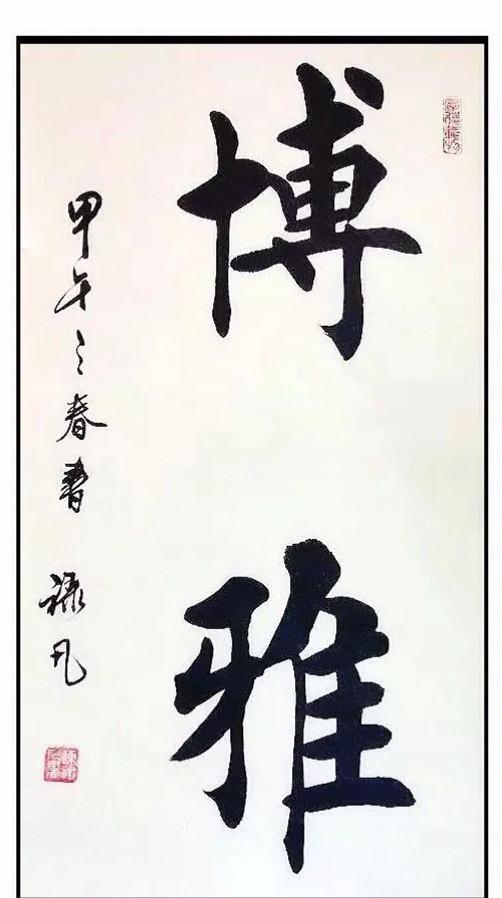 博雅
甲午之春書 禄凡